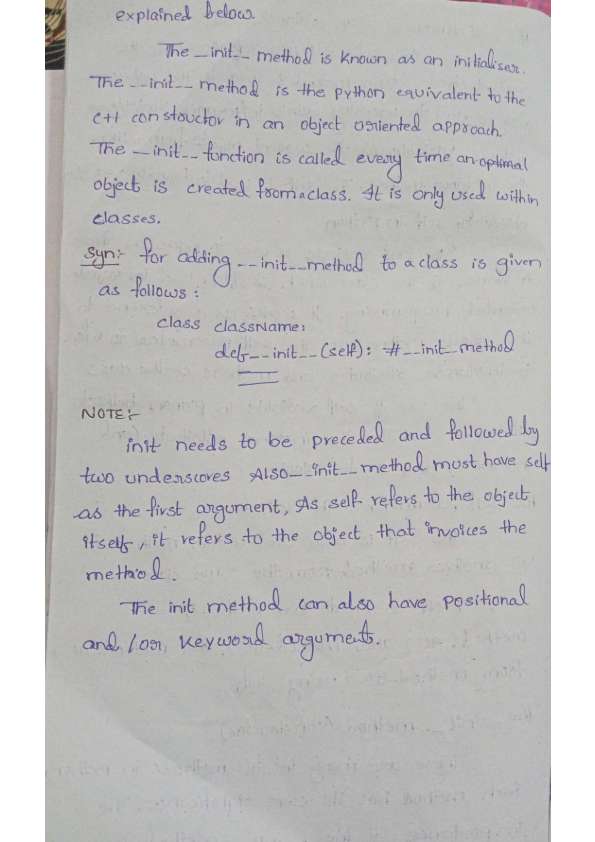 explained below.
The __init__ method is known as an initialiser.
The __init__ method is the python equivalent to the
C++ constouctor in an object oriented approach.
The __init__ function is called every time an optimal
object is created from a class. It is only used within
classes.
Syn:- for adding __init__ method to a class is given
as follows :
class className:
def __init__ (self): # __init_method
NOTE:-
init needs to be preceded and followed by
two underscores Also __init__ method must have self
as the first argument, As self refers to the object
itself, it refers to the object that invoices the
method.
The init method can also have positional
and / or keyword arguments.